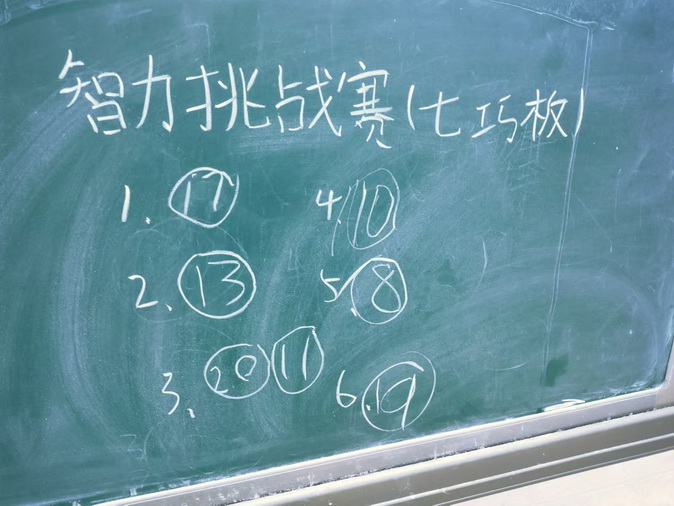 智力挑战赛(七巧板)
1. 17 4. 10
2、 13 5. 8
3、 20 11 6. 19